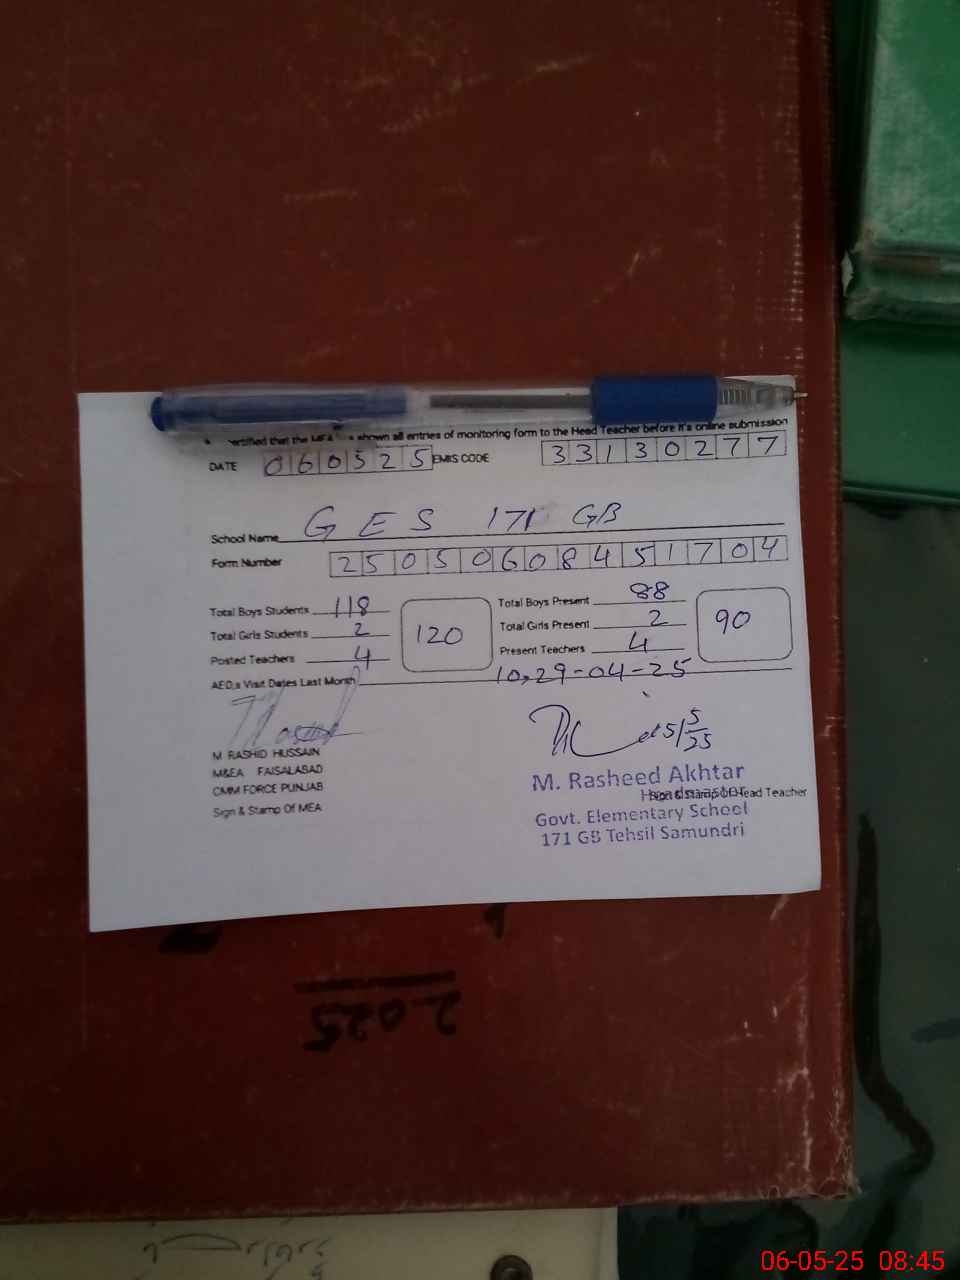 certified that the MEA shown all entries of monitoring form to the Head Teacher before it's online submission
DATE 060525 EMIS CODE 33130277
School Name GES 171 GB
Form Number 25050608451704
Total Boys Students 118
Total Girls Students 2
Posted Teachers 4
120
Total Boys Present 88
Total Girls Present 2
Present Teachers 4
90
AEO,s Visit Dates Last Month 10,29-04-25
M RASHID HUSSAIN
M&EA FAISALABAD
CMM FORCE PUNJAB
Sign & Stamp Of MEA
5/5/25
M. Rasheed Akhtar
Headmaster
Sign & Stamp Of Head Teacher
Govt. Elementary School
171 GB Tehsil Samundri
2025
06-05-25 08:45